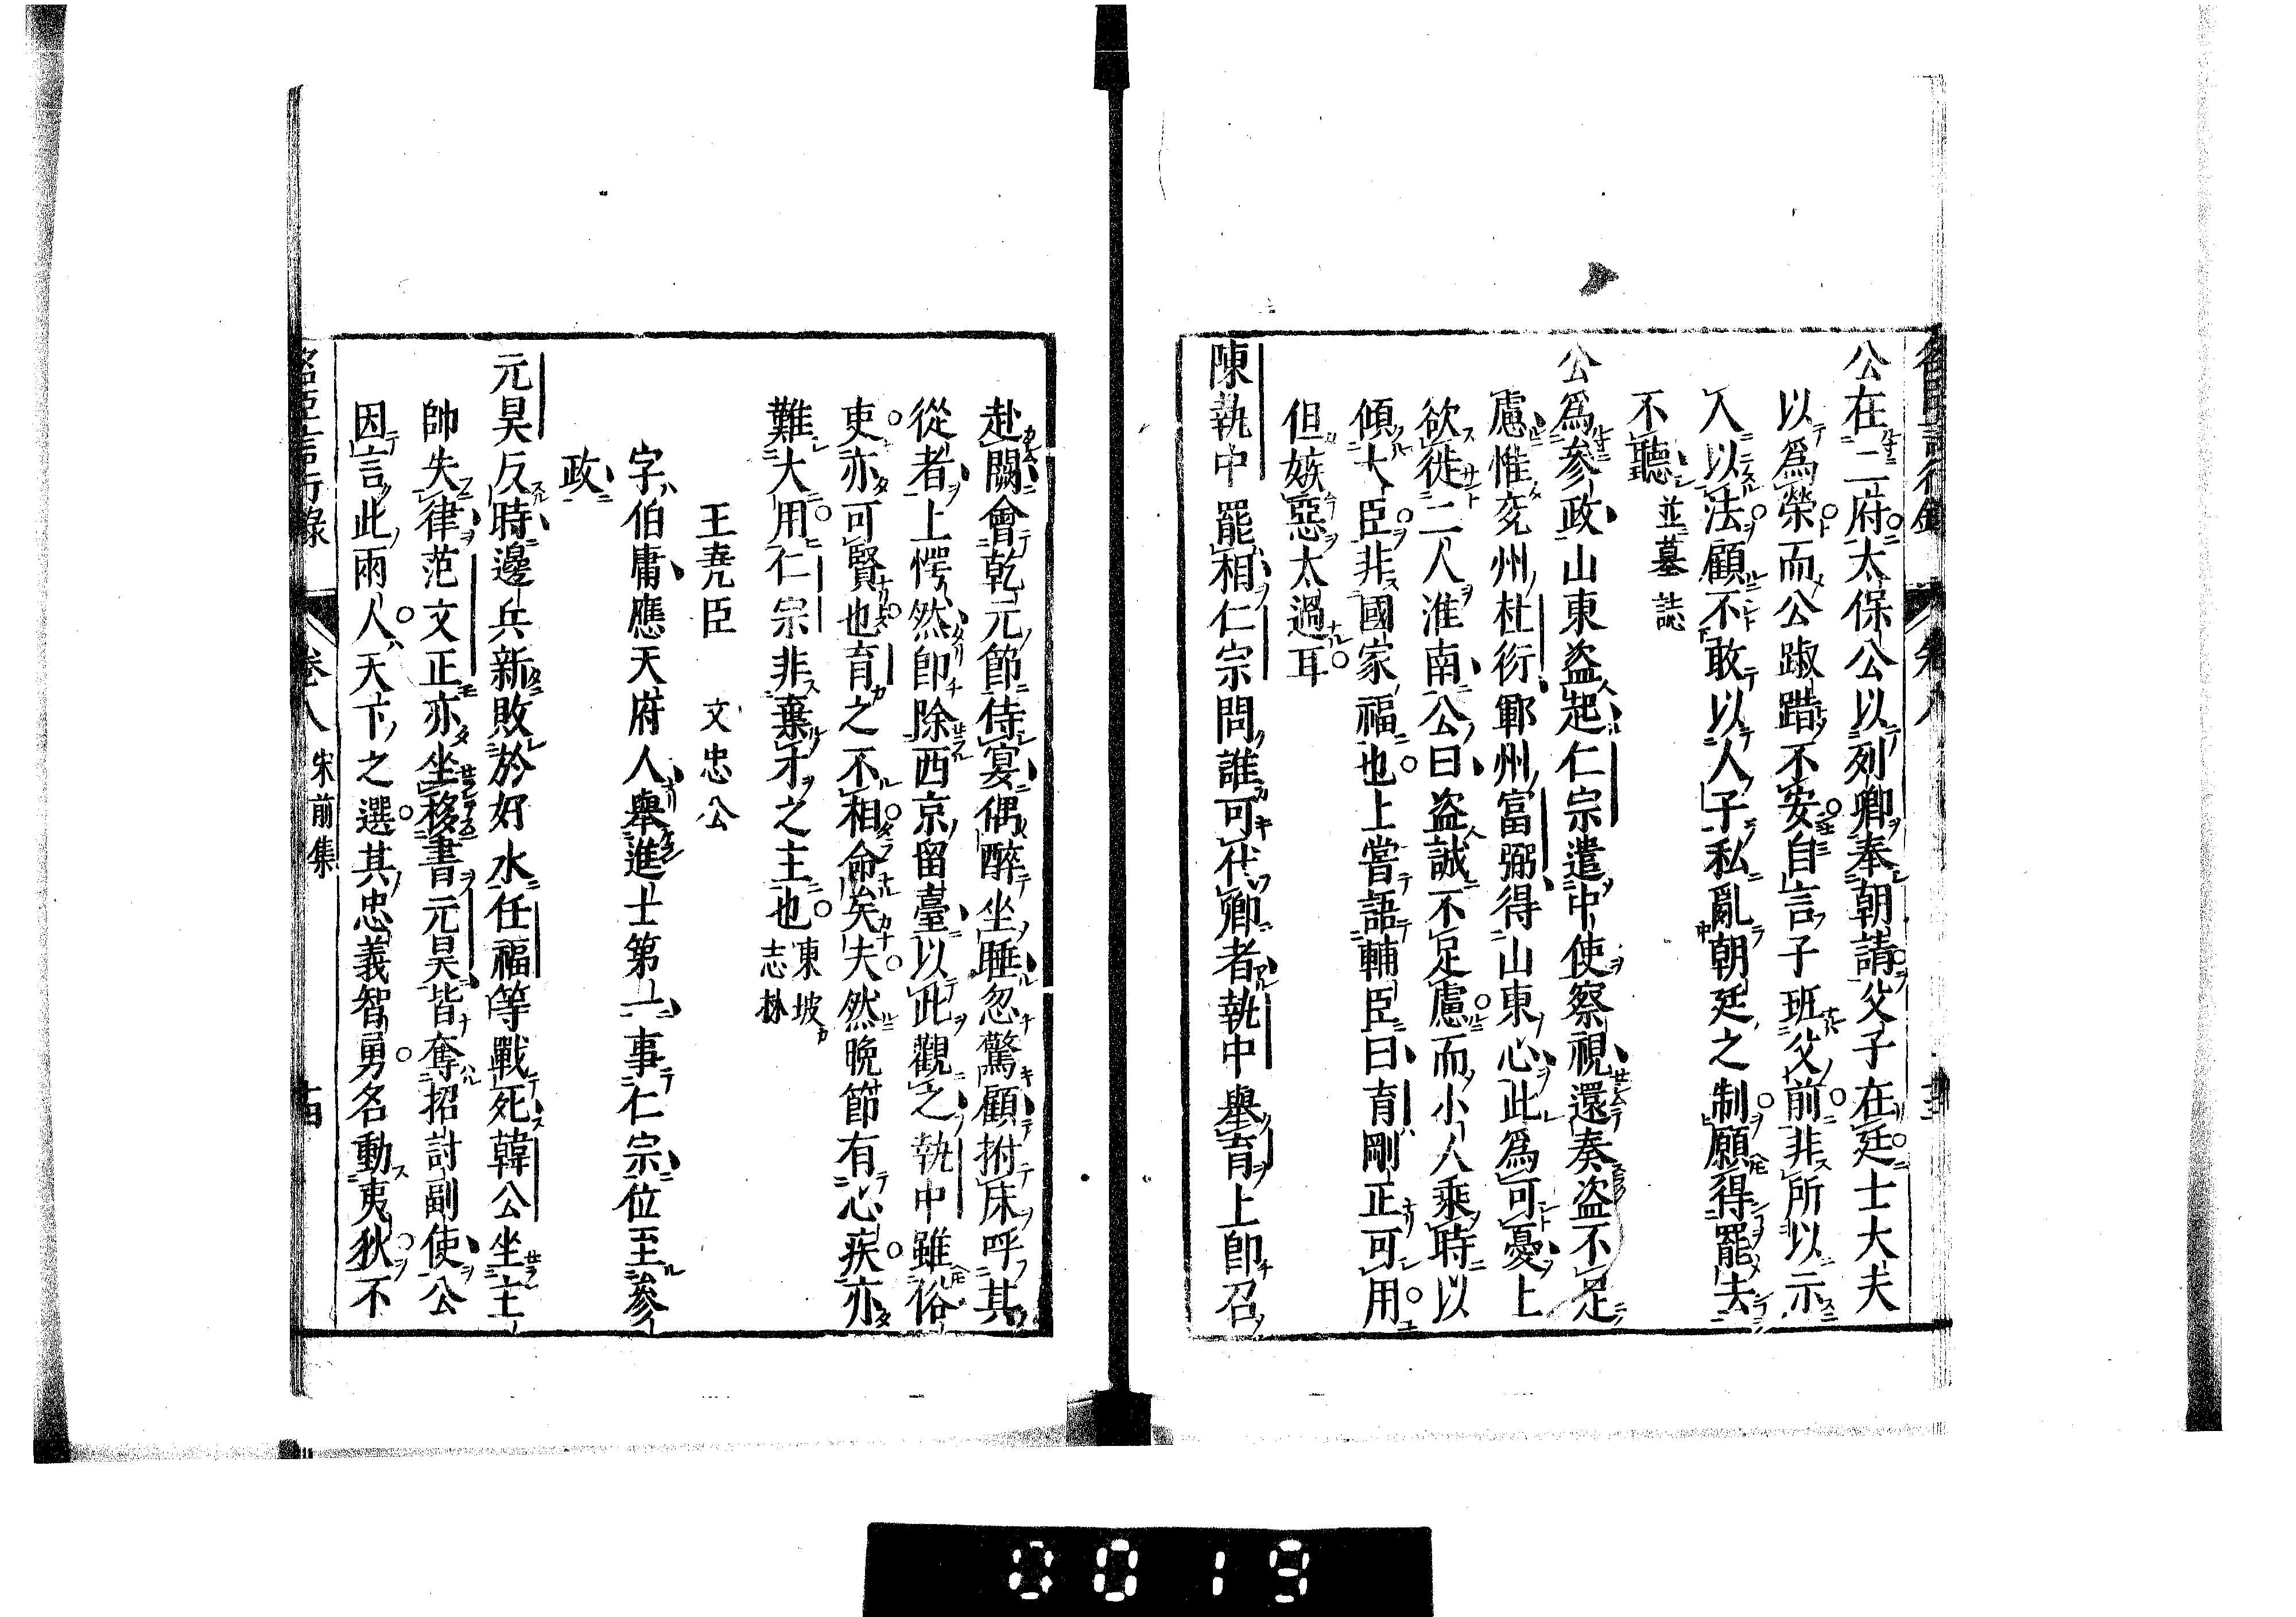 公在二府太保公以列卿奉朝請父子在廷士大夫
以爲榮而公踧踖不安自言子班父前非所以示
人以法顧不敢以人子私亂朝廷之制願得罷去
不聽並墓誌
公爲參政山東盜起仁宗遣中使察視還奏盜不足
慮惟兗州杜衍鄆州富弼得山東心此爲可憂上
欲徙二人淮南公曰盜誠不足慮而小人乘時以
傾大臣非國家福也上嘗語輔臣曰育剛正可用
但嫉惡太過耳
陳執中罷相仁宗問誰可代卿者執中舉育上卽召
赴闕會乾元節侍宴偶醉坐睡忽驚顧拊床呼其
從者上愕然卽除西京留臺以此觀之執中雖俗
吏亦可賢也育之不相命矣夫然晩節有心疾亦
難大用仁宗非棄才之主也東坡志林
王堯臣 文忠公
字伯庸應天府人舉進士第一事仁宗位至參
政
元昊反時邊兵新敗於好水任福等戰死韓公坐主
帥失律范文正亦坐移書元昊皆奪招討副使公
因言此兩人天下之選其忠義智勇名動夷狄不
名臣言行錄 卷八 宋前集 十四
0019